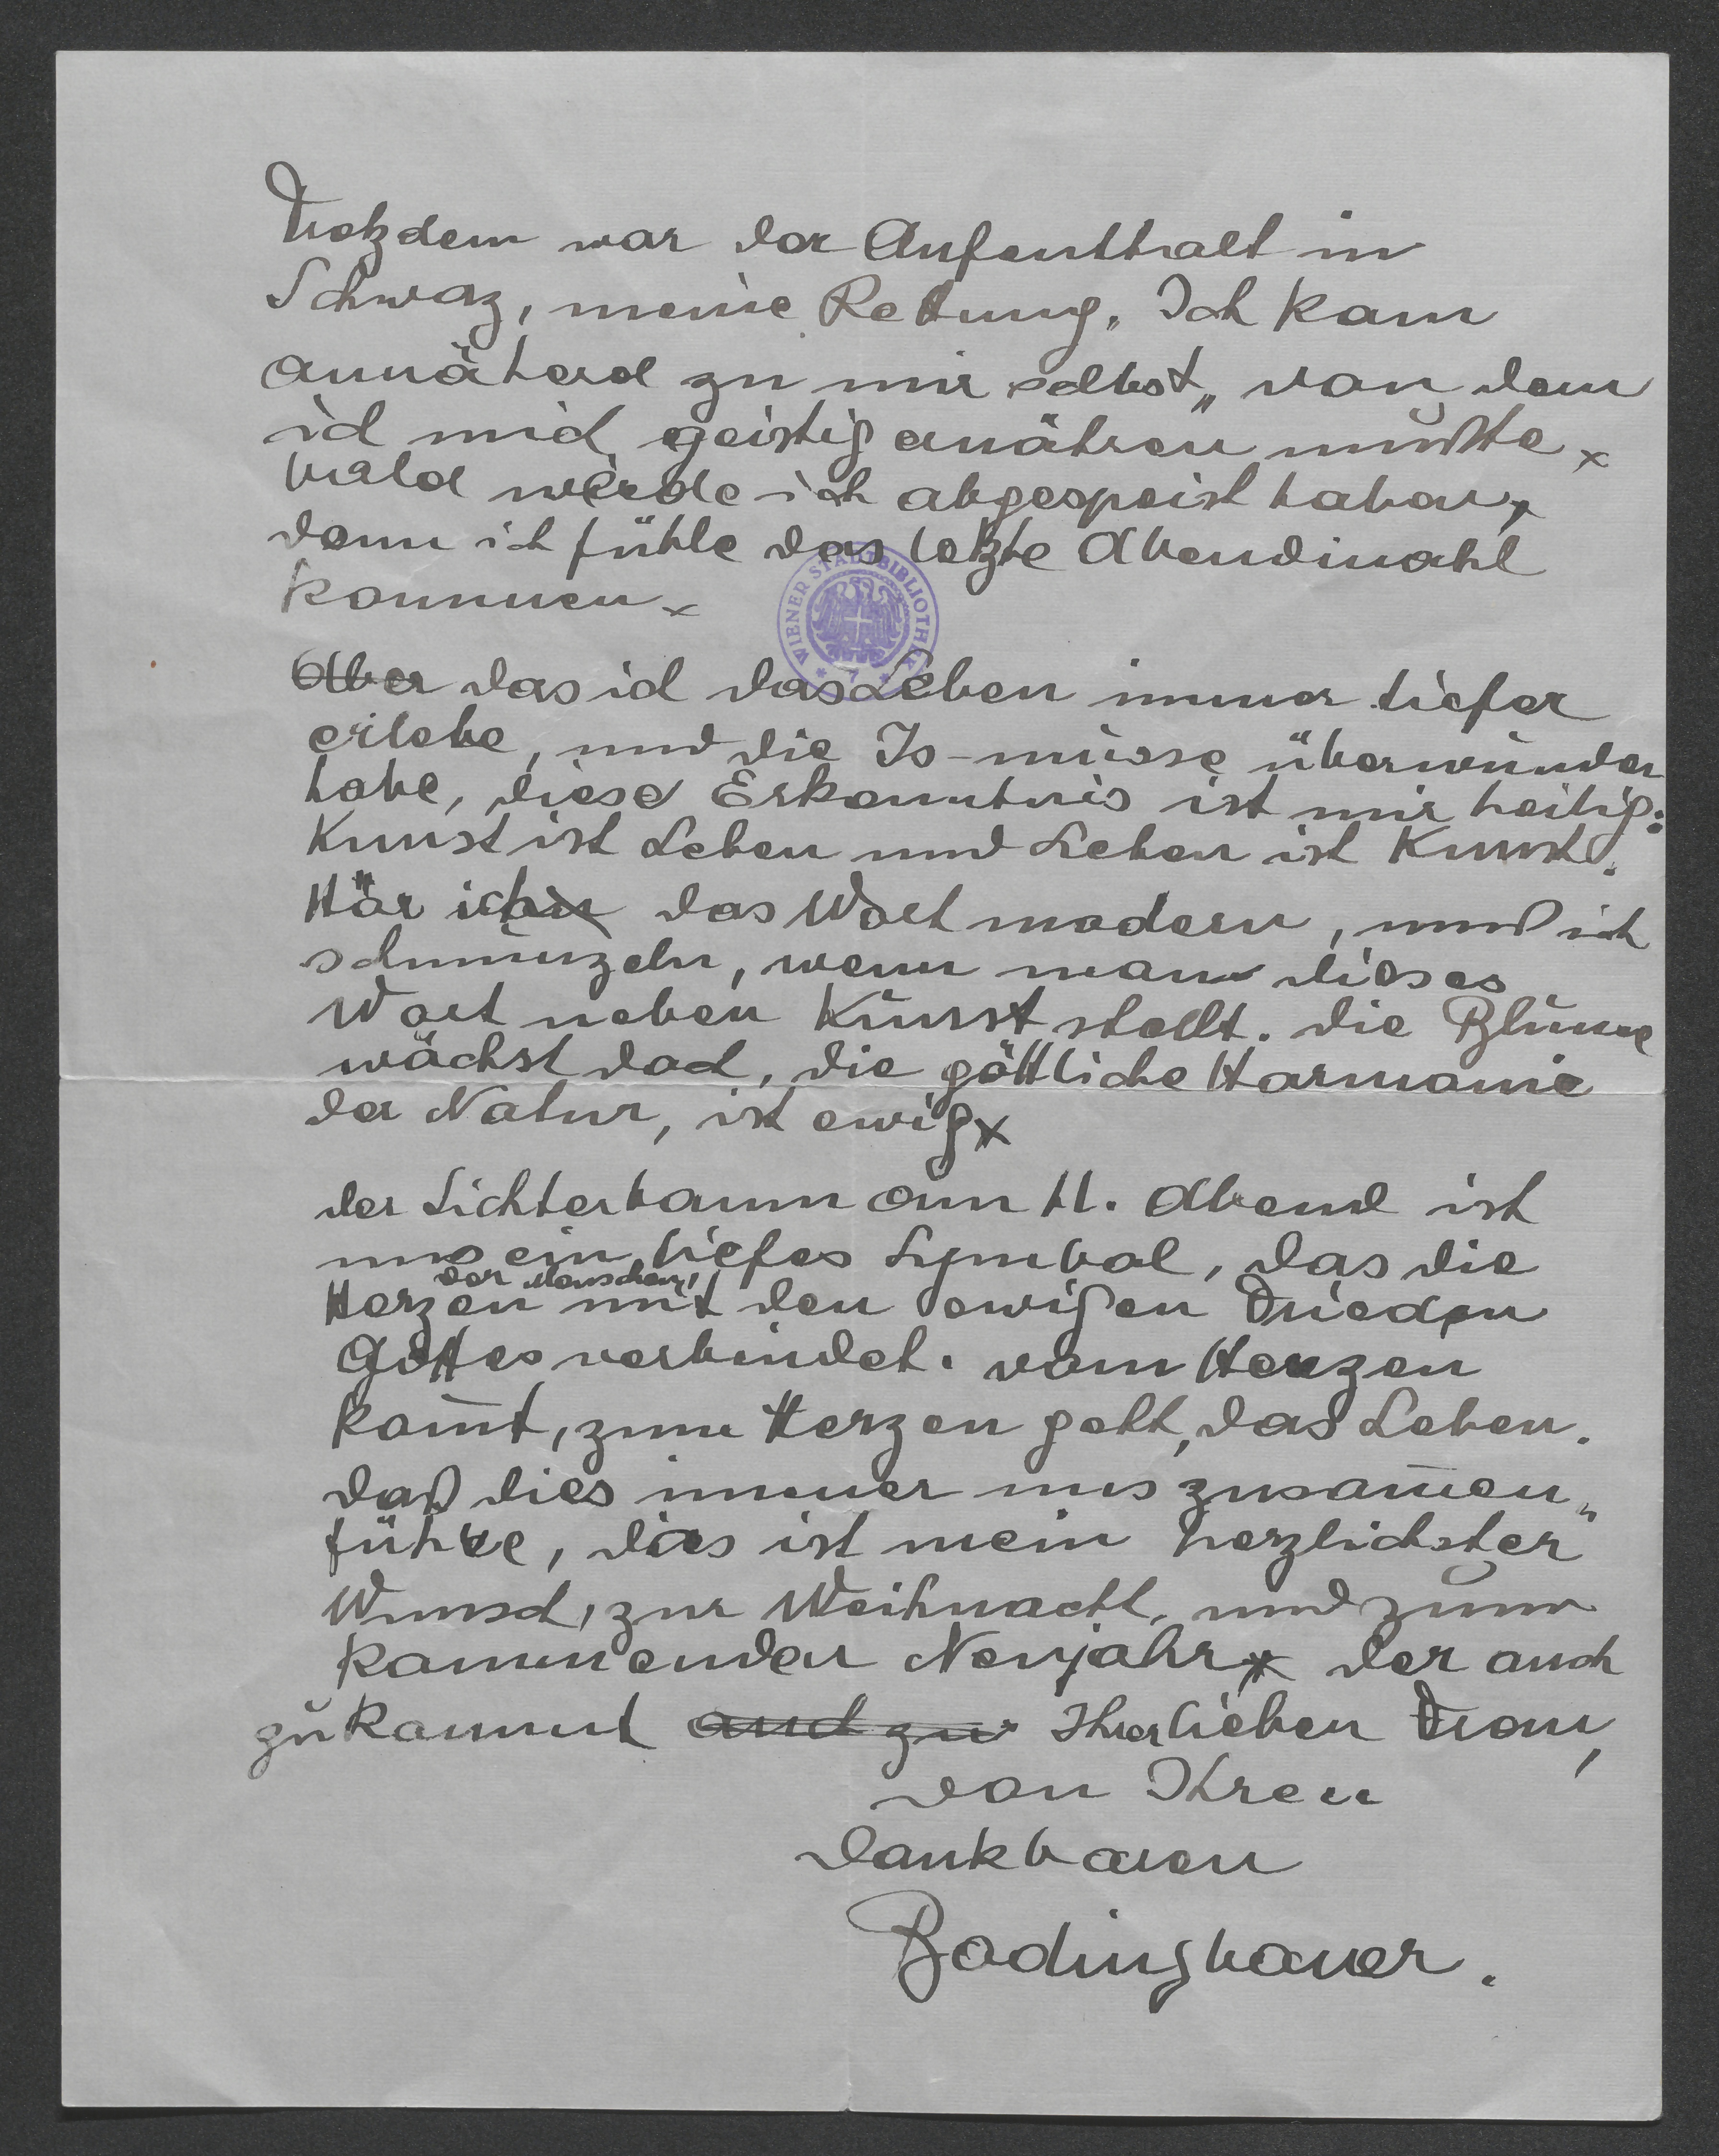 Trotzdem war der Aufenthalt in
Schwaz, meine Rettung. Ich kam
annähernd zu mir selbst, von dem
ich mich geistig ernähren mußte
bald werde ich abgespeist haben,
denn ich fühle das letzte Abendmahl
kommen
WIENER STADTBIBLIOTHEK
* 7 *
Aber das ich das Leben immer tiefer
erlebe, und die Is-müsse überwunden
habe, diese Erkenntnis ist mir heilig:
Kunst ist Leben und Leben ist Kunst.
Hör ich das Wort modern, muß ich
schmunzeln, wenn man dieses
Wort neben Kunst stellt. die Blume
wächst doch, die göttliche Harmonie
der Natur, ist ewig
der Lichterbaum am Hl. Abend ist
uns ein tiefes Symbol, das die
der Menschen,
Herzen mit den ewigen Frieden
Gottes verbindet. vom Herzen
kom̄t, zum Herzen geht, das Leben.
daß dies immer uns zusam̄en„
führe, dies ist mein herzlichster
Wunsch, zur Weihnacht, und zum
kommenden Neujahr der auch
zukommt auch zu Ihrer lieben Frau,
von Ihren
dankbaren
Bodingbauer.